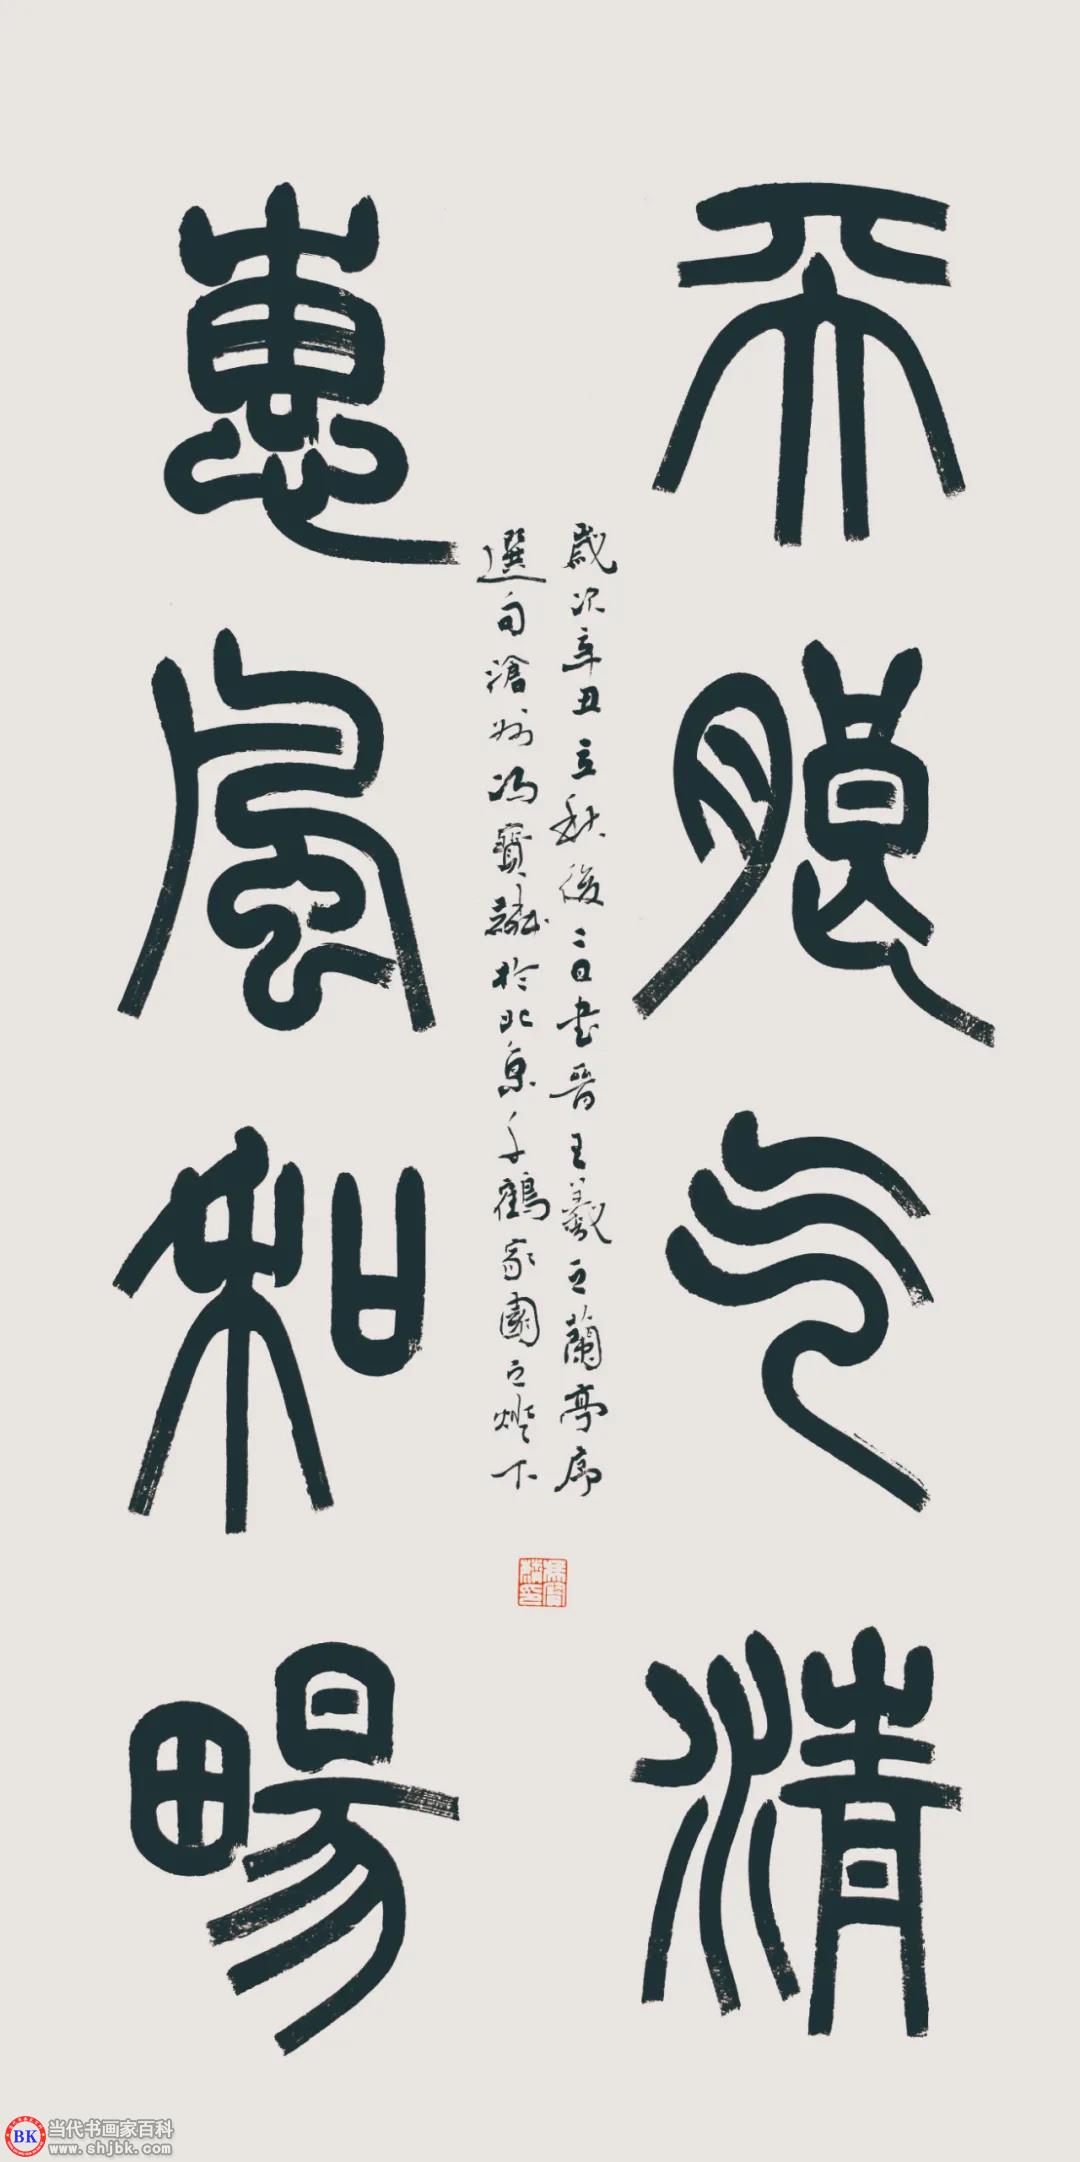 天朗气清
惠風和暢
歲次辛丑立秋後二日書晉王羲之蘭亭序
選句滄州馮寶麟於北京千鶴家園之燈下
BK
当代书画家百科
www.shjbk.com